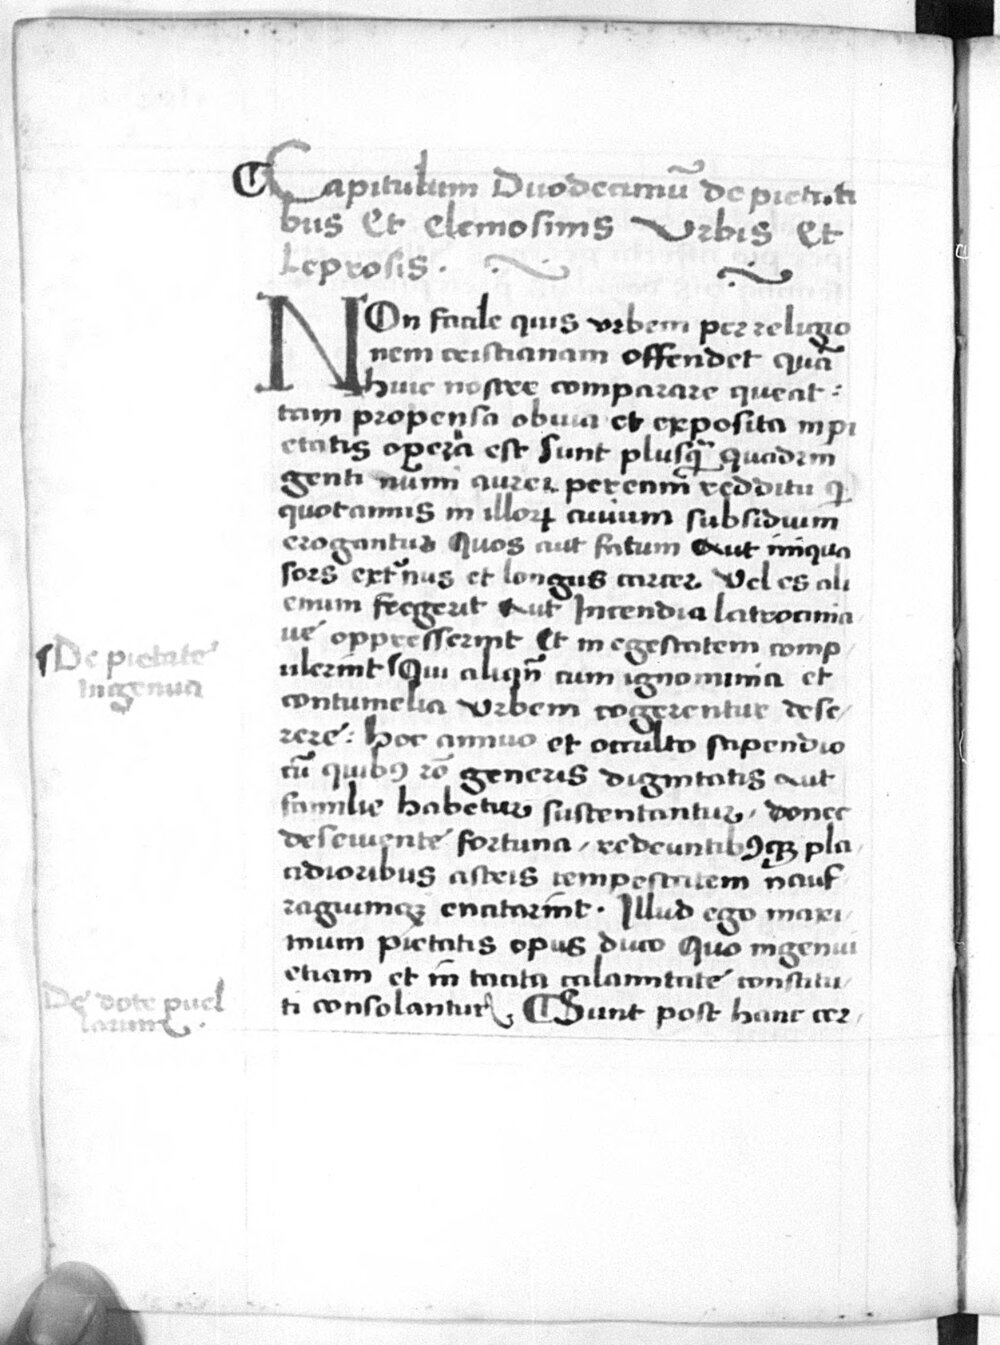 Capitulum Duodecimū de pietati
bus Et Elemosinis Vrbis Et
Leprosis .
NOn facile quis vrbem per religio
nem cristianam offendet quā
huic nostre comparare queat :
tam propensa obuia et exposita in pi
etatis opera est Sunt plusq̄ quadrin
genti num̄i aurei perennī redditu q
quotannis in illoꝝ ciuium subsidium
erogantur Quos aut fatum Aut iniqua
sors extnus et longus carcer Vel es ali
enum fregerit Aut Incendia latrocinia
ue oppresserint Et in egestatem comp
ulerint Qui aliqn̄ cum ignominia et
contumelia Vrbem cogerentur dese/
rere : hoc annuo et occulto stipendio
cū quibꝰ rō generis dignitatis Aut
familie habetur sustentantur / donec
deseuiente fortuna / redeuntibꝰqꝫ pla/
cidioribus astris tempestatem nauf
ragiumqꝫ enatarint . Illud ego maxi/
mum pietatis opus duco Quo ingenui
etiam et in tacita calamitate constitu/
ti consolantur . Sunt post hanc cer/
De pietate
ingenua
De dote puel
larum .